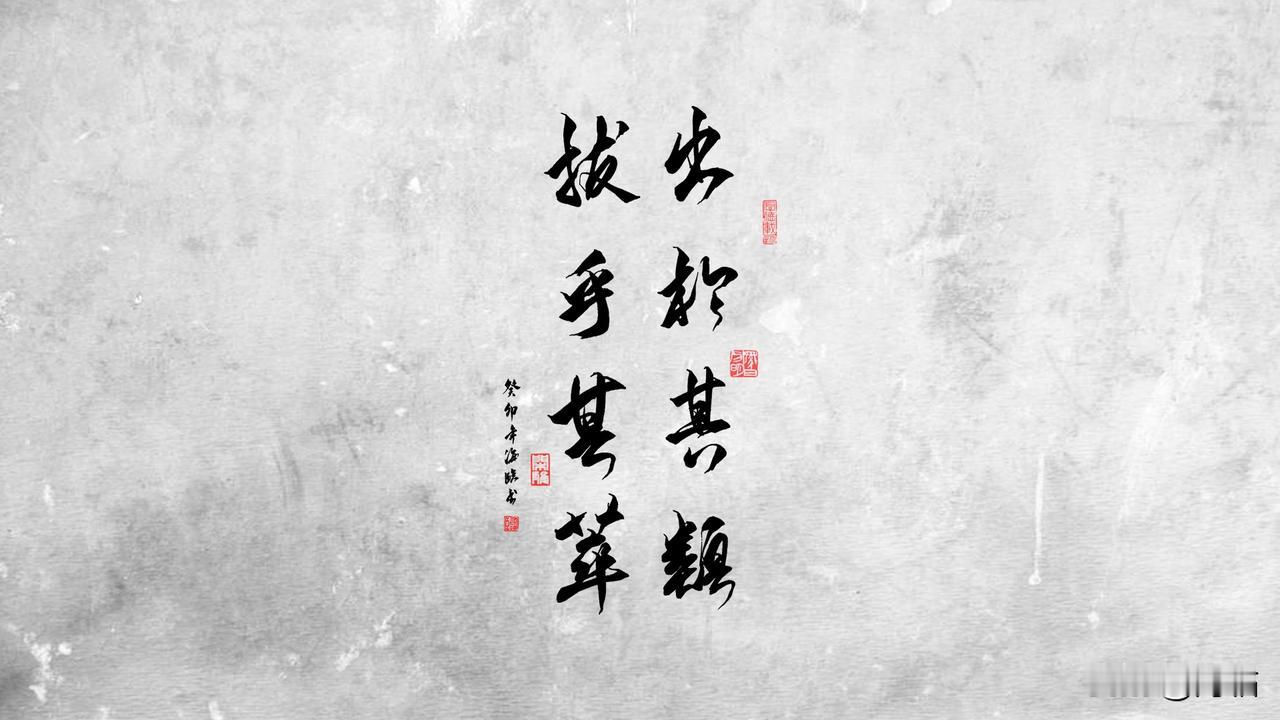 出於其類
拔乎其萃
癸卯年海臨书